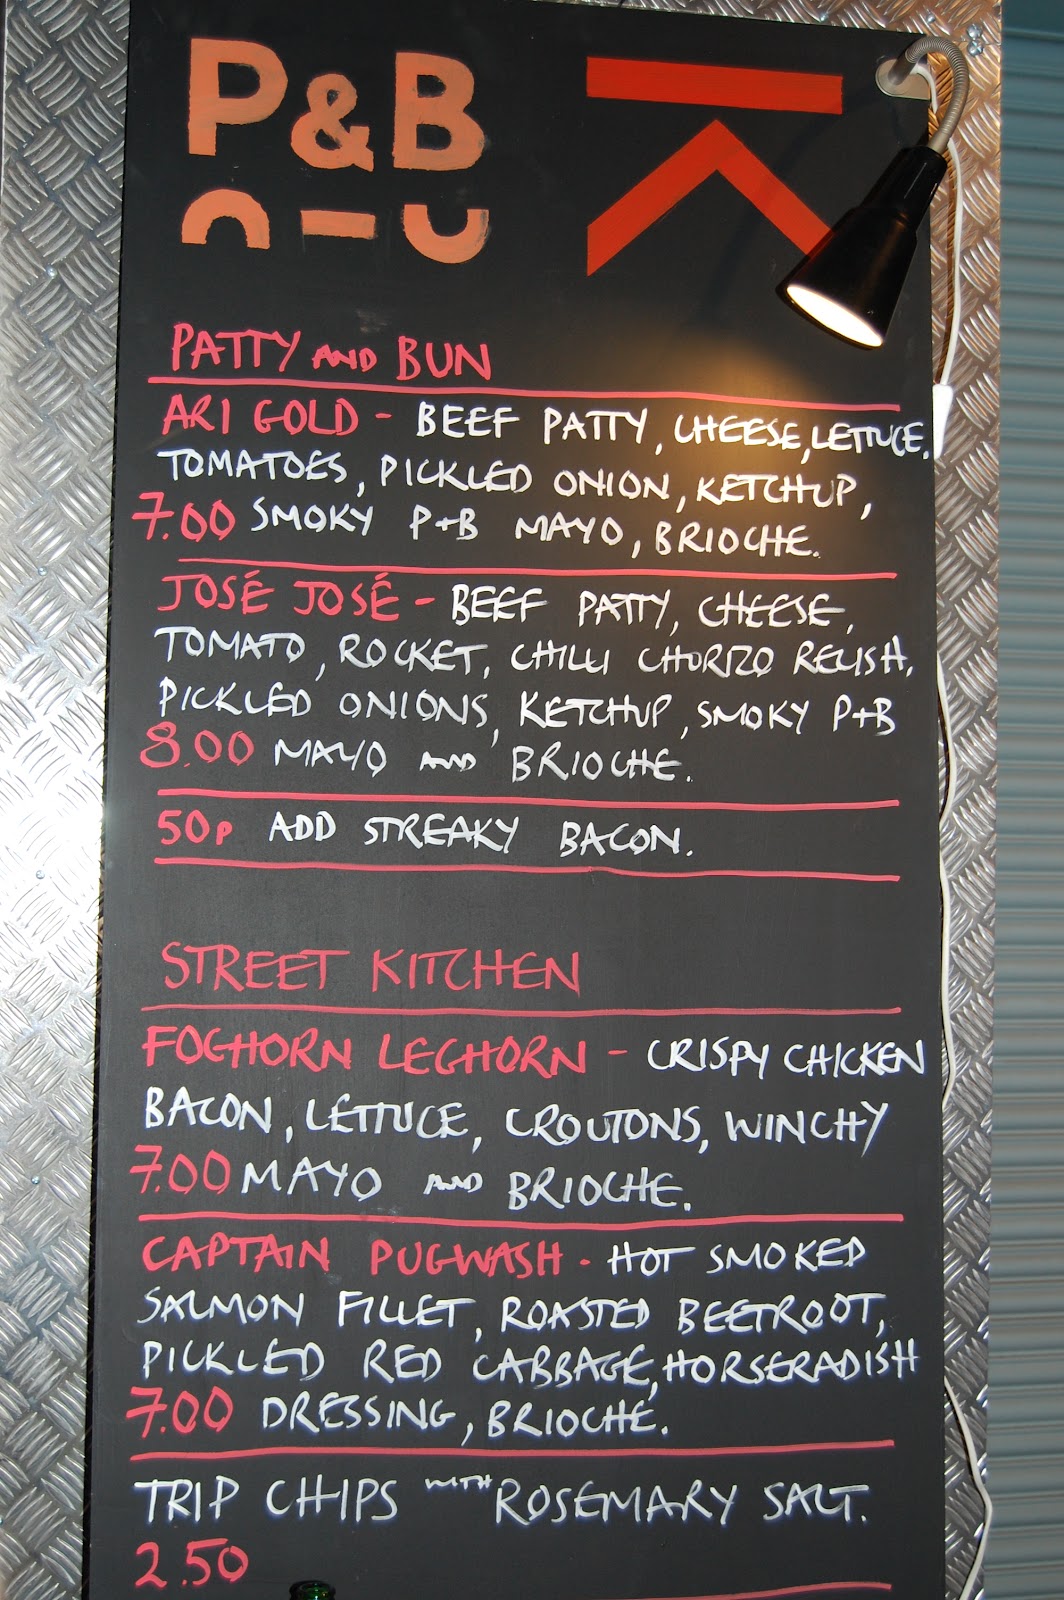 P&B
PATTY AND BUN
ARI GOLD - BEEF PATTY, CHEESE, LETTUCE.
TOMATOES, PICKLED ONION, KETCHUP,
7.00 SMOKY P+B MAYO, BRIOCHE.
JOSÉ JOSÉ - BEEF PATTY, CHEESE,
TOMATO, ROCKET, CHILLI CHORIZO RELISH.
PICKLED ONIONS, KETCHUP, SMOKY P+B
8.00 MAYO AND BRIOCHE.
50P ADD STREAKY BACON.
STREET KITCHEN
FOGHORN LEGHORN - CRISPY CHICKEN
BACON, LETTUCE, CROUTONS, WINCHY
7.00 MAYO AND BRIOCHE.
CAPTAIN PUGWASH - HOT SMOKED
SALMON FILLET, ROASTED BEETROOT,
PICKLED RED CABBAGE, HORSERADISH
7.00 DRESSING, BRIOCHE.
TRIP CHIPS WITH ROSEMARY SALT.
2.50